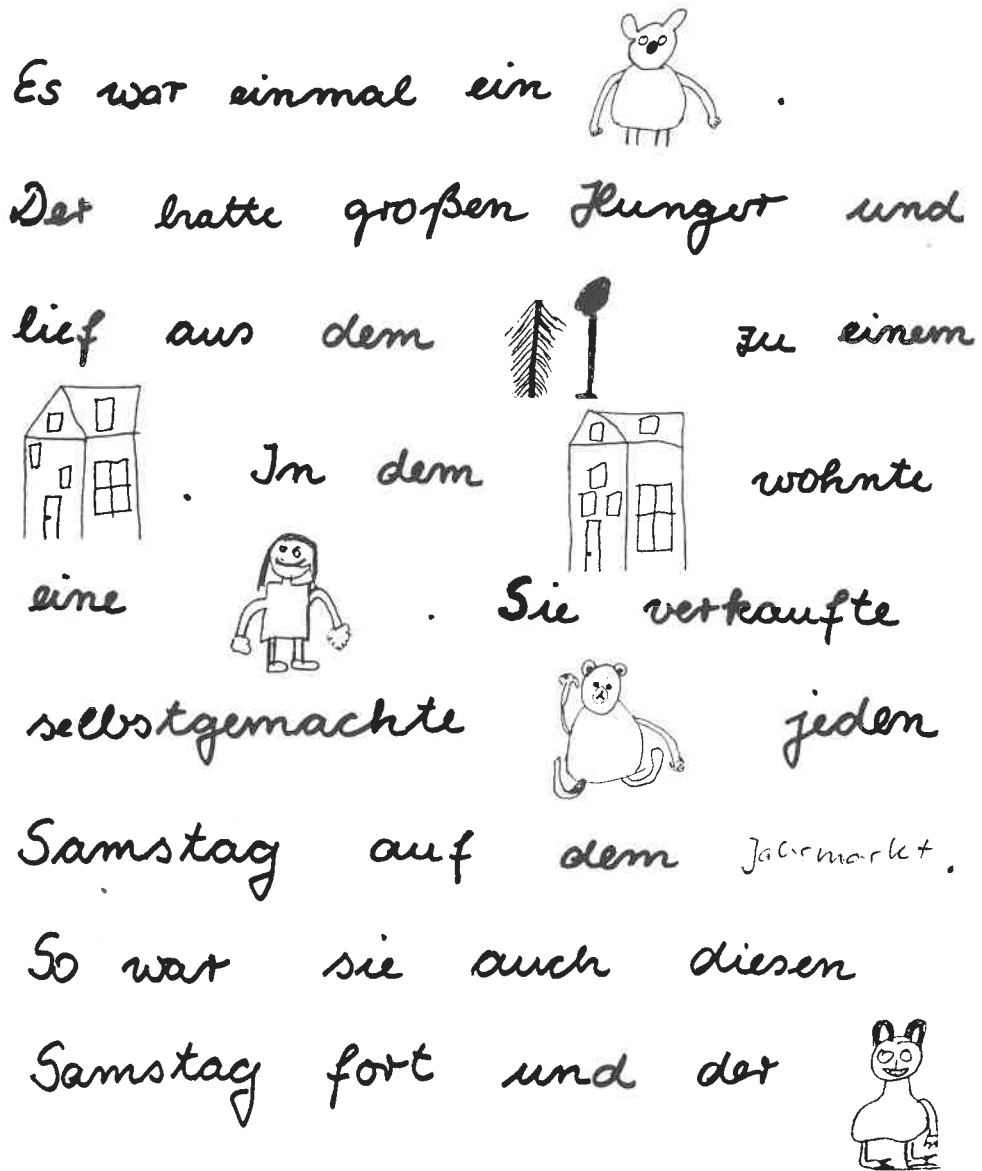 Es war einmal ein .
Der hatte großen Hunger und
lief aus dem zu einem
. In dem wohnte
eine . Sie verkaufte
selbstgemachte jeden
Samstag auf dem Jahrmarkt.
So war sie auch diesen
Samstag fort und der